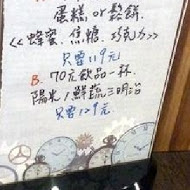 蛋糕 or 鬆餅.
<<蜂蜜、焦糖、巧克力>>
只要119元
B. 70元飲品一杯.
陽光/鮮蔬三明治
只要129元